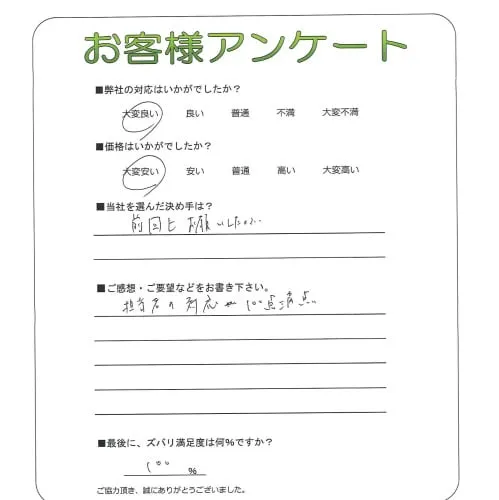 お客様アンケート
■弊社の対応はいかがでしたか？
大変良い 良い 普通 不満 大変不満
■価格はいかがでしたか？
大変安い 安い 普通 高い 大変高い
■当社を選んだ決め手は？
前回もお願いしたので
■ご感想・ご要望などをお書き下さい。
担当者の対応が100点満点
■最後に、ズバリ満足度は何％ですか？
100 ％
ご協力頂き、誠にありがとうございました。